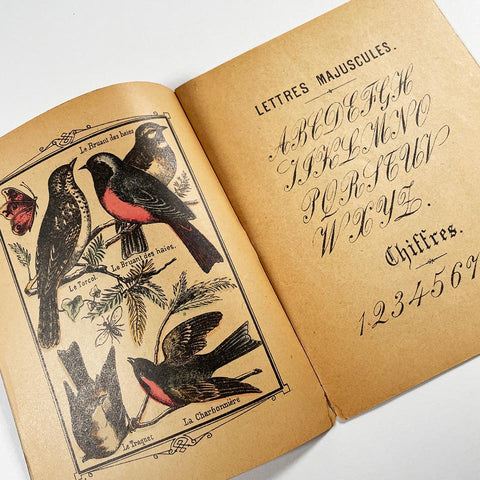 Le Bruant des haies
Le Bruant des haies.
Le Torcol
Le Traquet
La Charbonnière
LETTRES MAJUSCULES.
ABCDEFGH
IJKLMNO
PQRSTUV
WXYZ.
Chiffres.
1234567